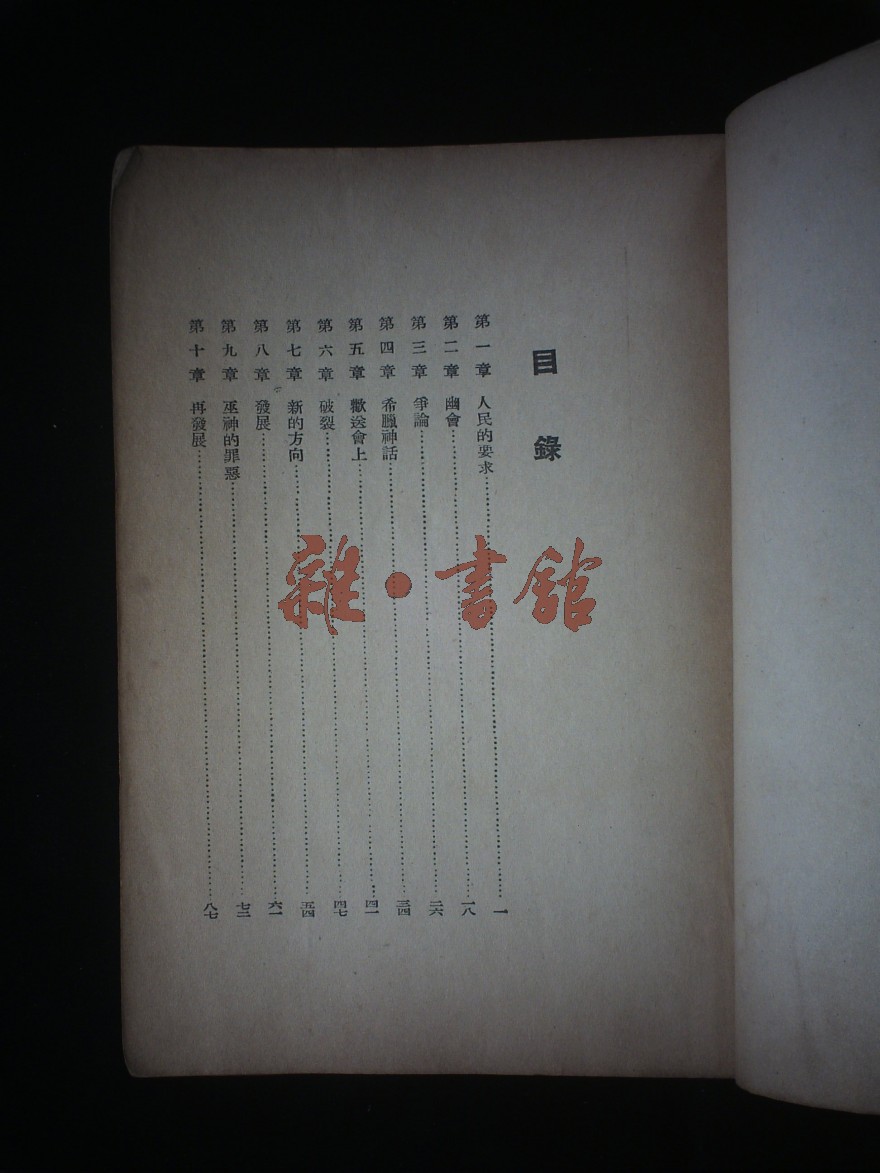 目錄
第一章 人民的要求……一
第二章 幽會……一八
第三章 爭論……二六
第四章 希臘神話……三四
第五章 歡送會上……四一
第六章 破裂……四七
第七章 新的方向……五四
第八章 發展……六一
第九章 巫神的罪惡……七二
第十章 再發展……八七
雜·書館